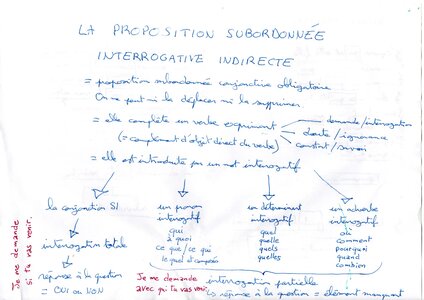 LA PROPOSITION SUBORDONNÉE
INTERROGATIVE INDIRECTE
= proposition subordonnée conjonctive obligatoire
On ne peut ni la déplacer ni la supprimer
= elle complète un verbe exprimant
demande/interrogation
doute/ignorance
constat/savoir
(= complément d'objet direct du verbe)
= elle est introduite par un mot interrogatif
la conjonction SI
interrogation totale
réponse à la question
= OUI ou NON
un pronom
interrogatif
qui
à quoi
ce que/ce qui
lequel et composés
un déterminant
interrogatif
quel
quelle
quels
quelles
un adverbe
interrogatif
où
comment
pourquoi
quand
combien
interrogation partielle
réponse à la question = élément manquant
Je me demande
si tu vas venir.
Je me demande
avec qui tu vas venir